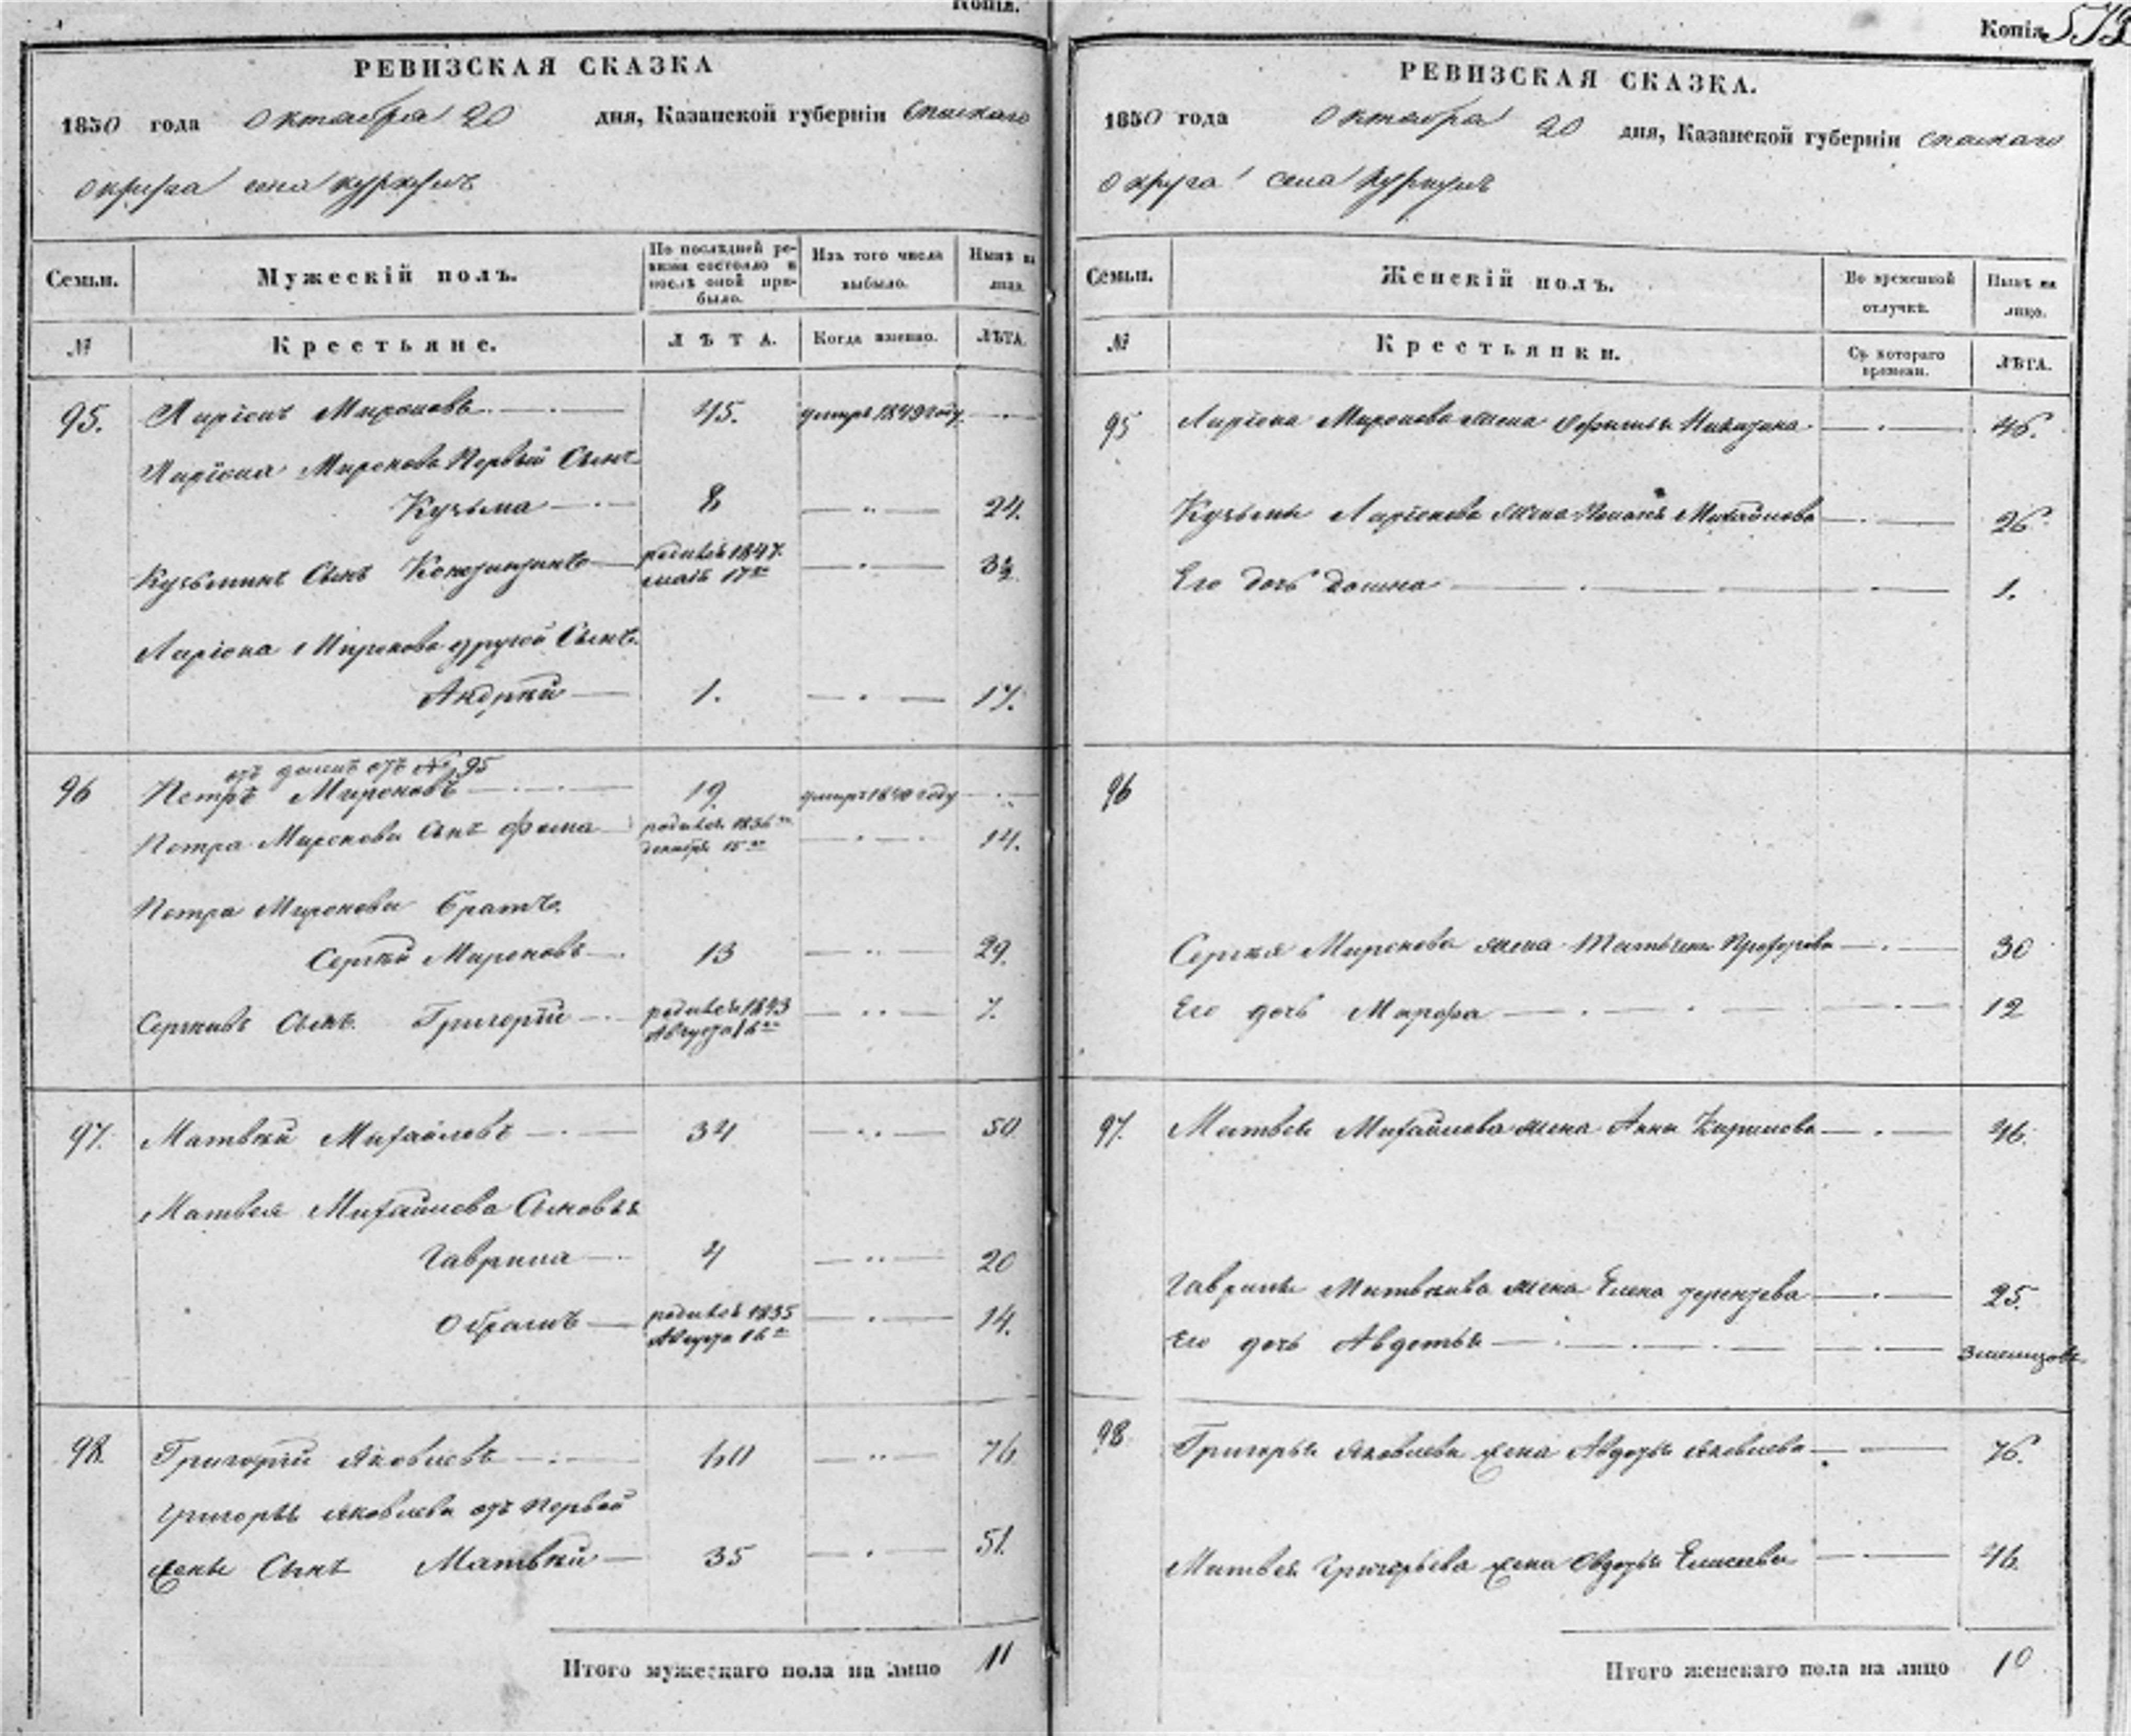 Копія.
РЕВИЗСКАЯ СКАЗКА
1850 года октабра 20 дня, Казанской губерніи спаскаго
округа села
Семьи.
Мужескій полъ.
По послѣдней ре-
визіи состояло и
послѣ оной при-
было.
Изъ того числа
выбыло.
Нынѣ на
лицо.
№
Крестьяне.
ЛѢТА.
Когда именно.
ЛѢТА.
95. Ларіонъ Мироновъ 45. умеръ 1849 году
Ларіона Миронова Первый Сынъ
Кузьма 8 24.
Кузьминъ Сынъ родился 1847 3½
маія 17го
Ларіона Миронова другой Сынъ.
Андрей 1. 17.
отъ №95
96 Петръ Мироновъ 19 умеръ 1840 году
Петра Миронова Сынъ Фома родился 1836го 14.
декабря 15го
Петра Миронова братъ.
Сергѣй Мироновъ 13 29.
Сергѣивъ Сынъ. Григорій родился 1843 7.
Августа 16го
97. Матвѣй Михайловъ 34 50
Матвея Михайлова Сыновья
Гаврила 4 20
Обрамъ родился 1835 14.
Августа 16го
98. Григорій Яковлевъ 60 76
Григорья Яковлева отъ Первой
жены Сынъ Матвѣй 35 51.
Итого мужескаго пола на лицо 11
Копія. 573
РЕВИЗСКАЯ СКАЗКА.
1850 года Октабра 20 дня, Казанской губерніи спаскаго
округа села
Семьи.
Женскій полъ.
Во временной
отлучкѣ.
Нынѣ на
лицо.
№
Крестьянки.
Съ котораго
времени.
ЛѢТА.
95 Ларіона Миронова жена 46.
Кузьмы Ларіонова жена Михайлова 26.
Его дочь 1.
96
Сергѣя Миронова жена Татьяна 30
Его дочь Марфа 12
97. Матвея Михайлова жена Анна Кирилова 46.
Гаврилы Матвѣива жена Елена 25.
Его дочь Авдотья
98 Григорья Яковлева жена Авдотья Яковлева 76.
Матвея Григорьева жена Овдотья Елисеева 46.
Итого женскаго пола на лицо 10